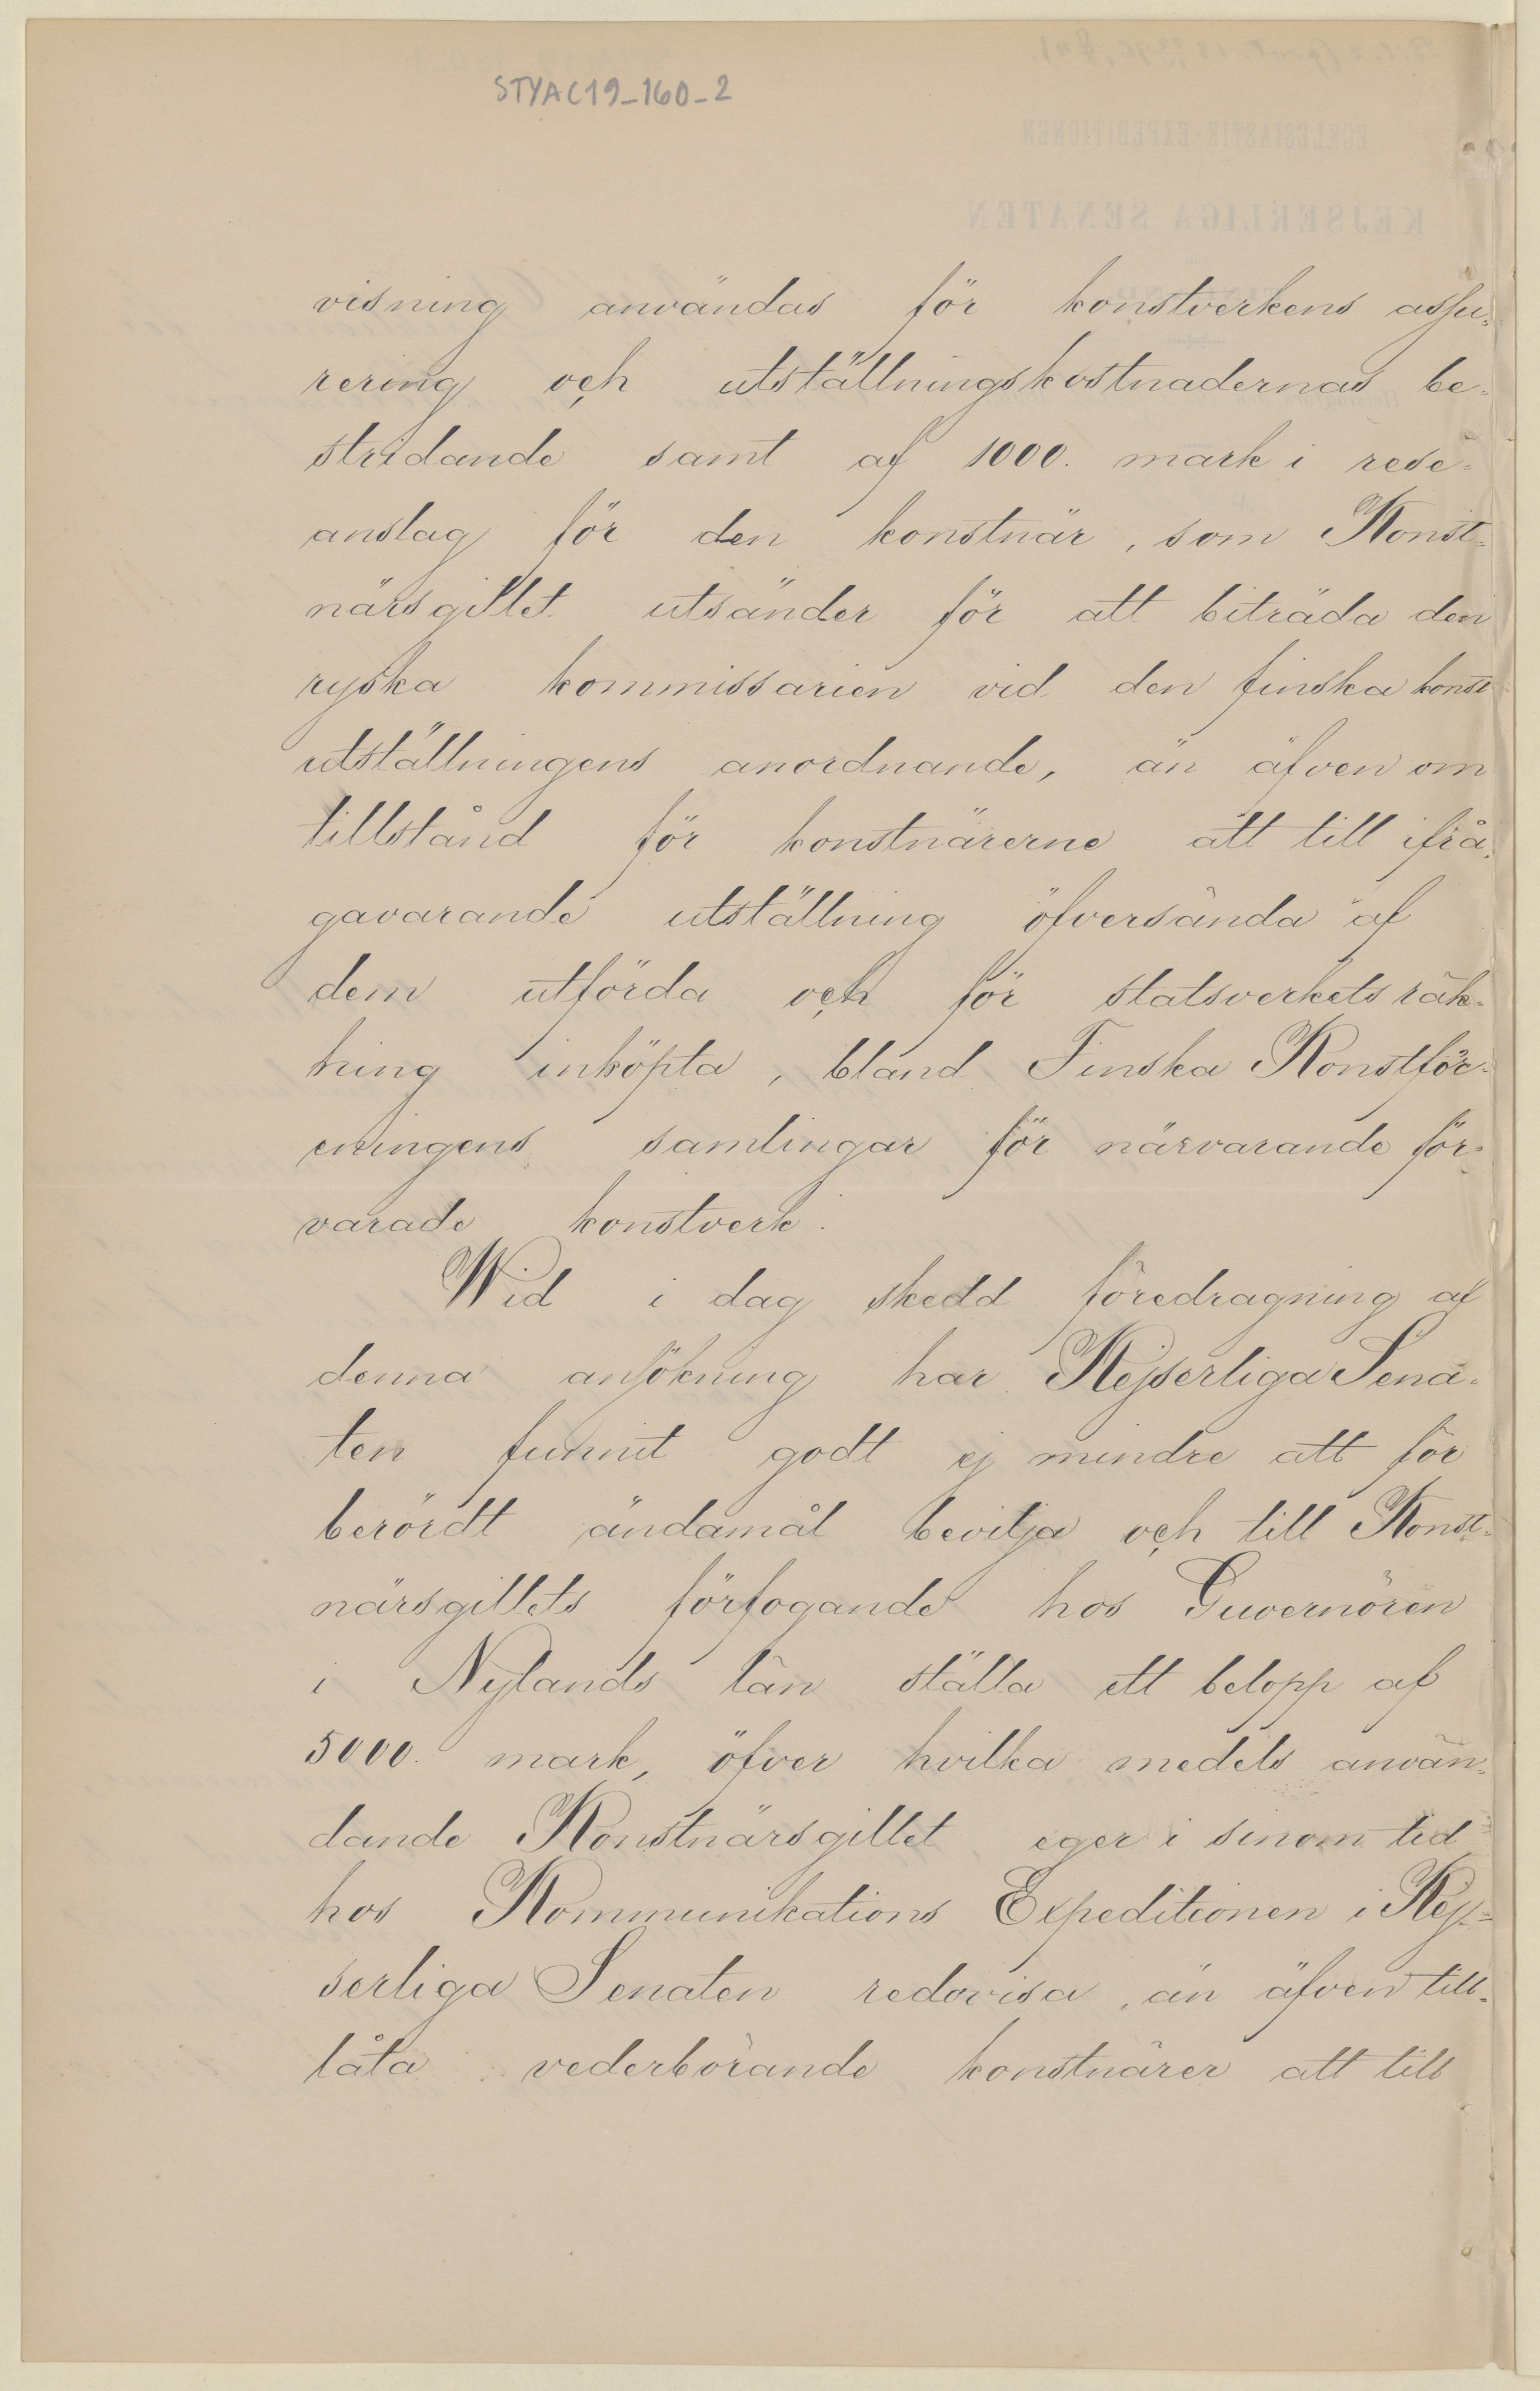 STYAC19_160_2
visning användas för konstverkens assu-
rering och utställningskostnadernas be-
stridande samt af 1000. mark i rese-
anslag för den konstnär, som Konst-
närsgillet utsänder för att biträda den
ryska kommissarien vid den finska konst
utställningens anordnande, än äfven om
tillstånd för konstnärerne att till ifrå-
gavarande utställning öfversända af
dem utförda och för statsverkets räk-
ning inköpta, bland Finska Konstför-
eningens samlingar för närvarande för-
varade konstverk.
Wid i dag skedd föredragning af
denna ansökning har Kejserliga Sena-
ten funnit godt ej mindre att för
berördt ändamål bevilja och till Konst-
närsgillets förfogande hos Guvernören
i Nylands län ställa ett belopp af
5000. mark, öfver hvilka medels använ-
dande Konstnärsgillet eger i sinom tid
hos Kommunikations Expeditionen i Kej-
serliga Senaten redovisa, än äfven till-
låta vederbörande konstnärer att till